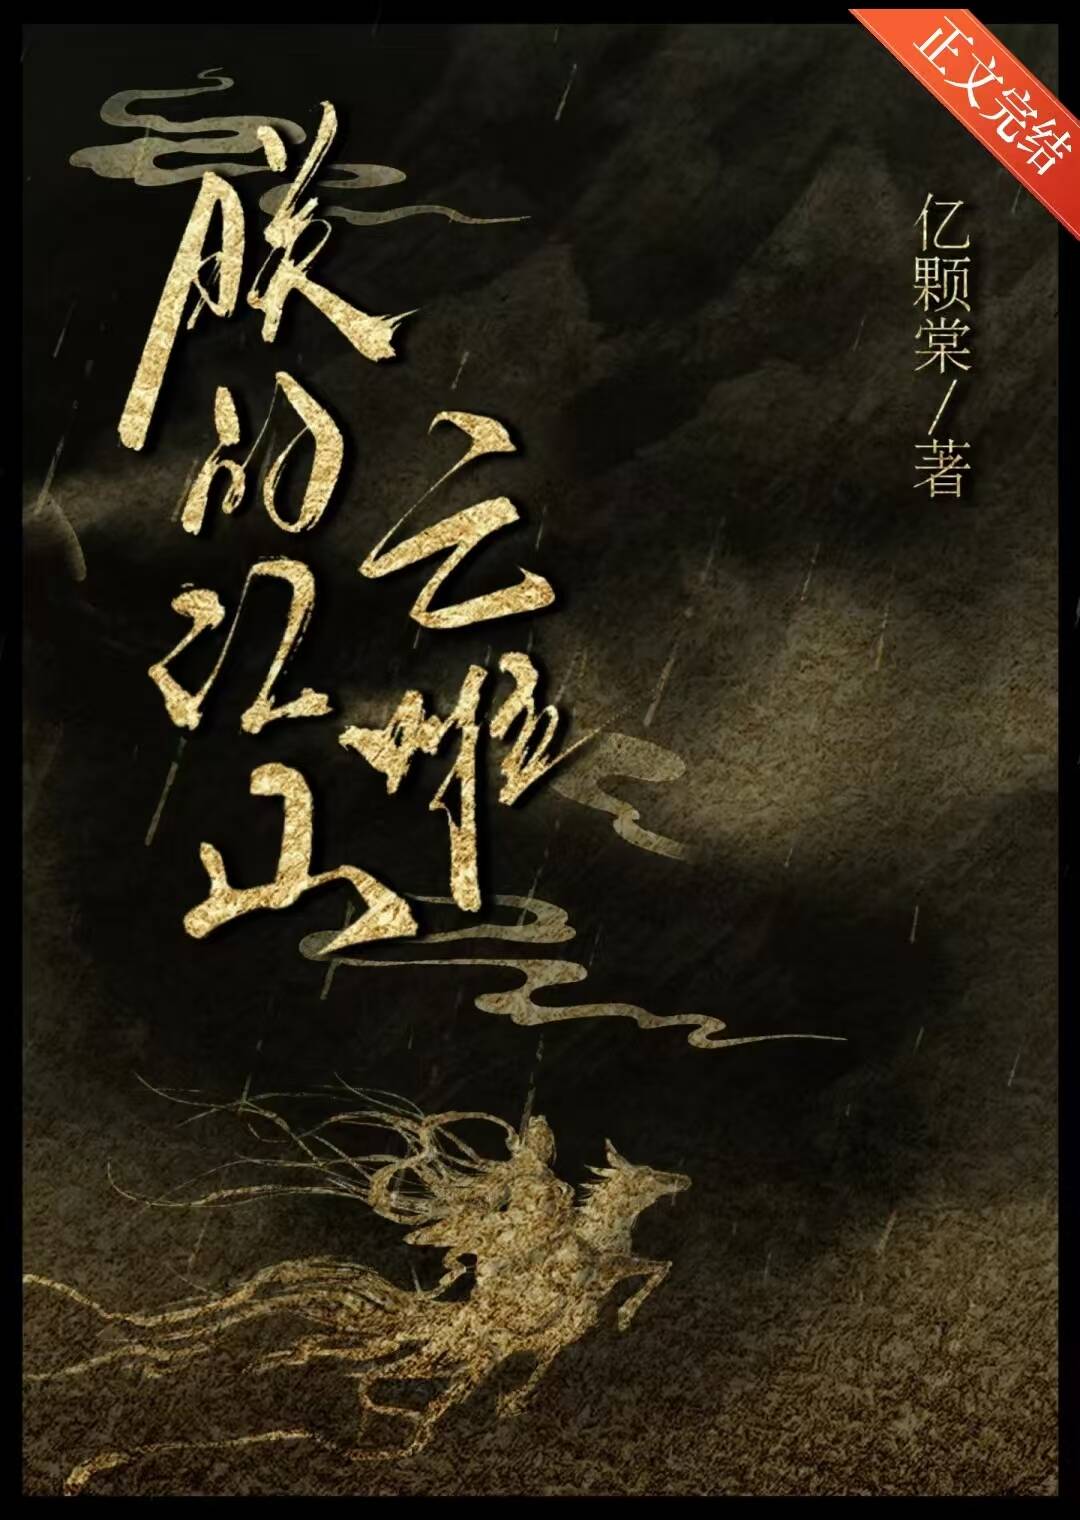 正文完结
亿颗棠/著
朕的江山
云